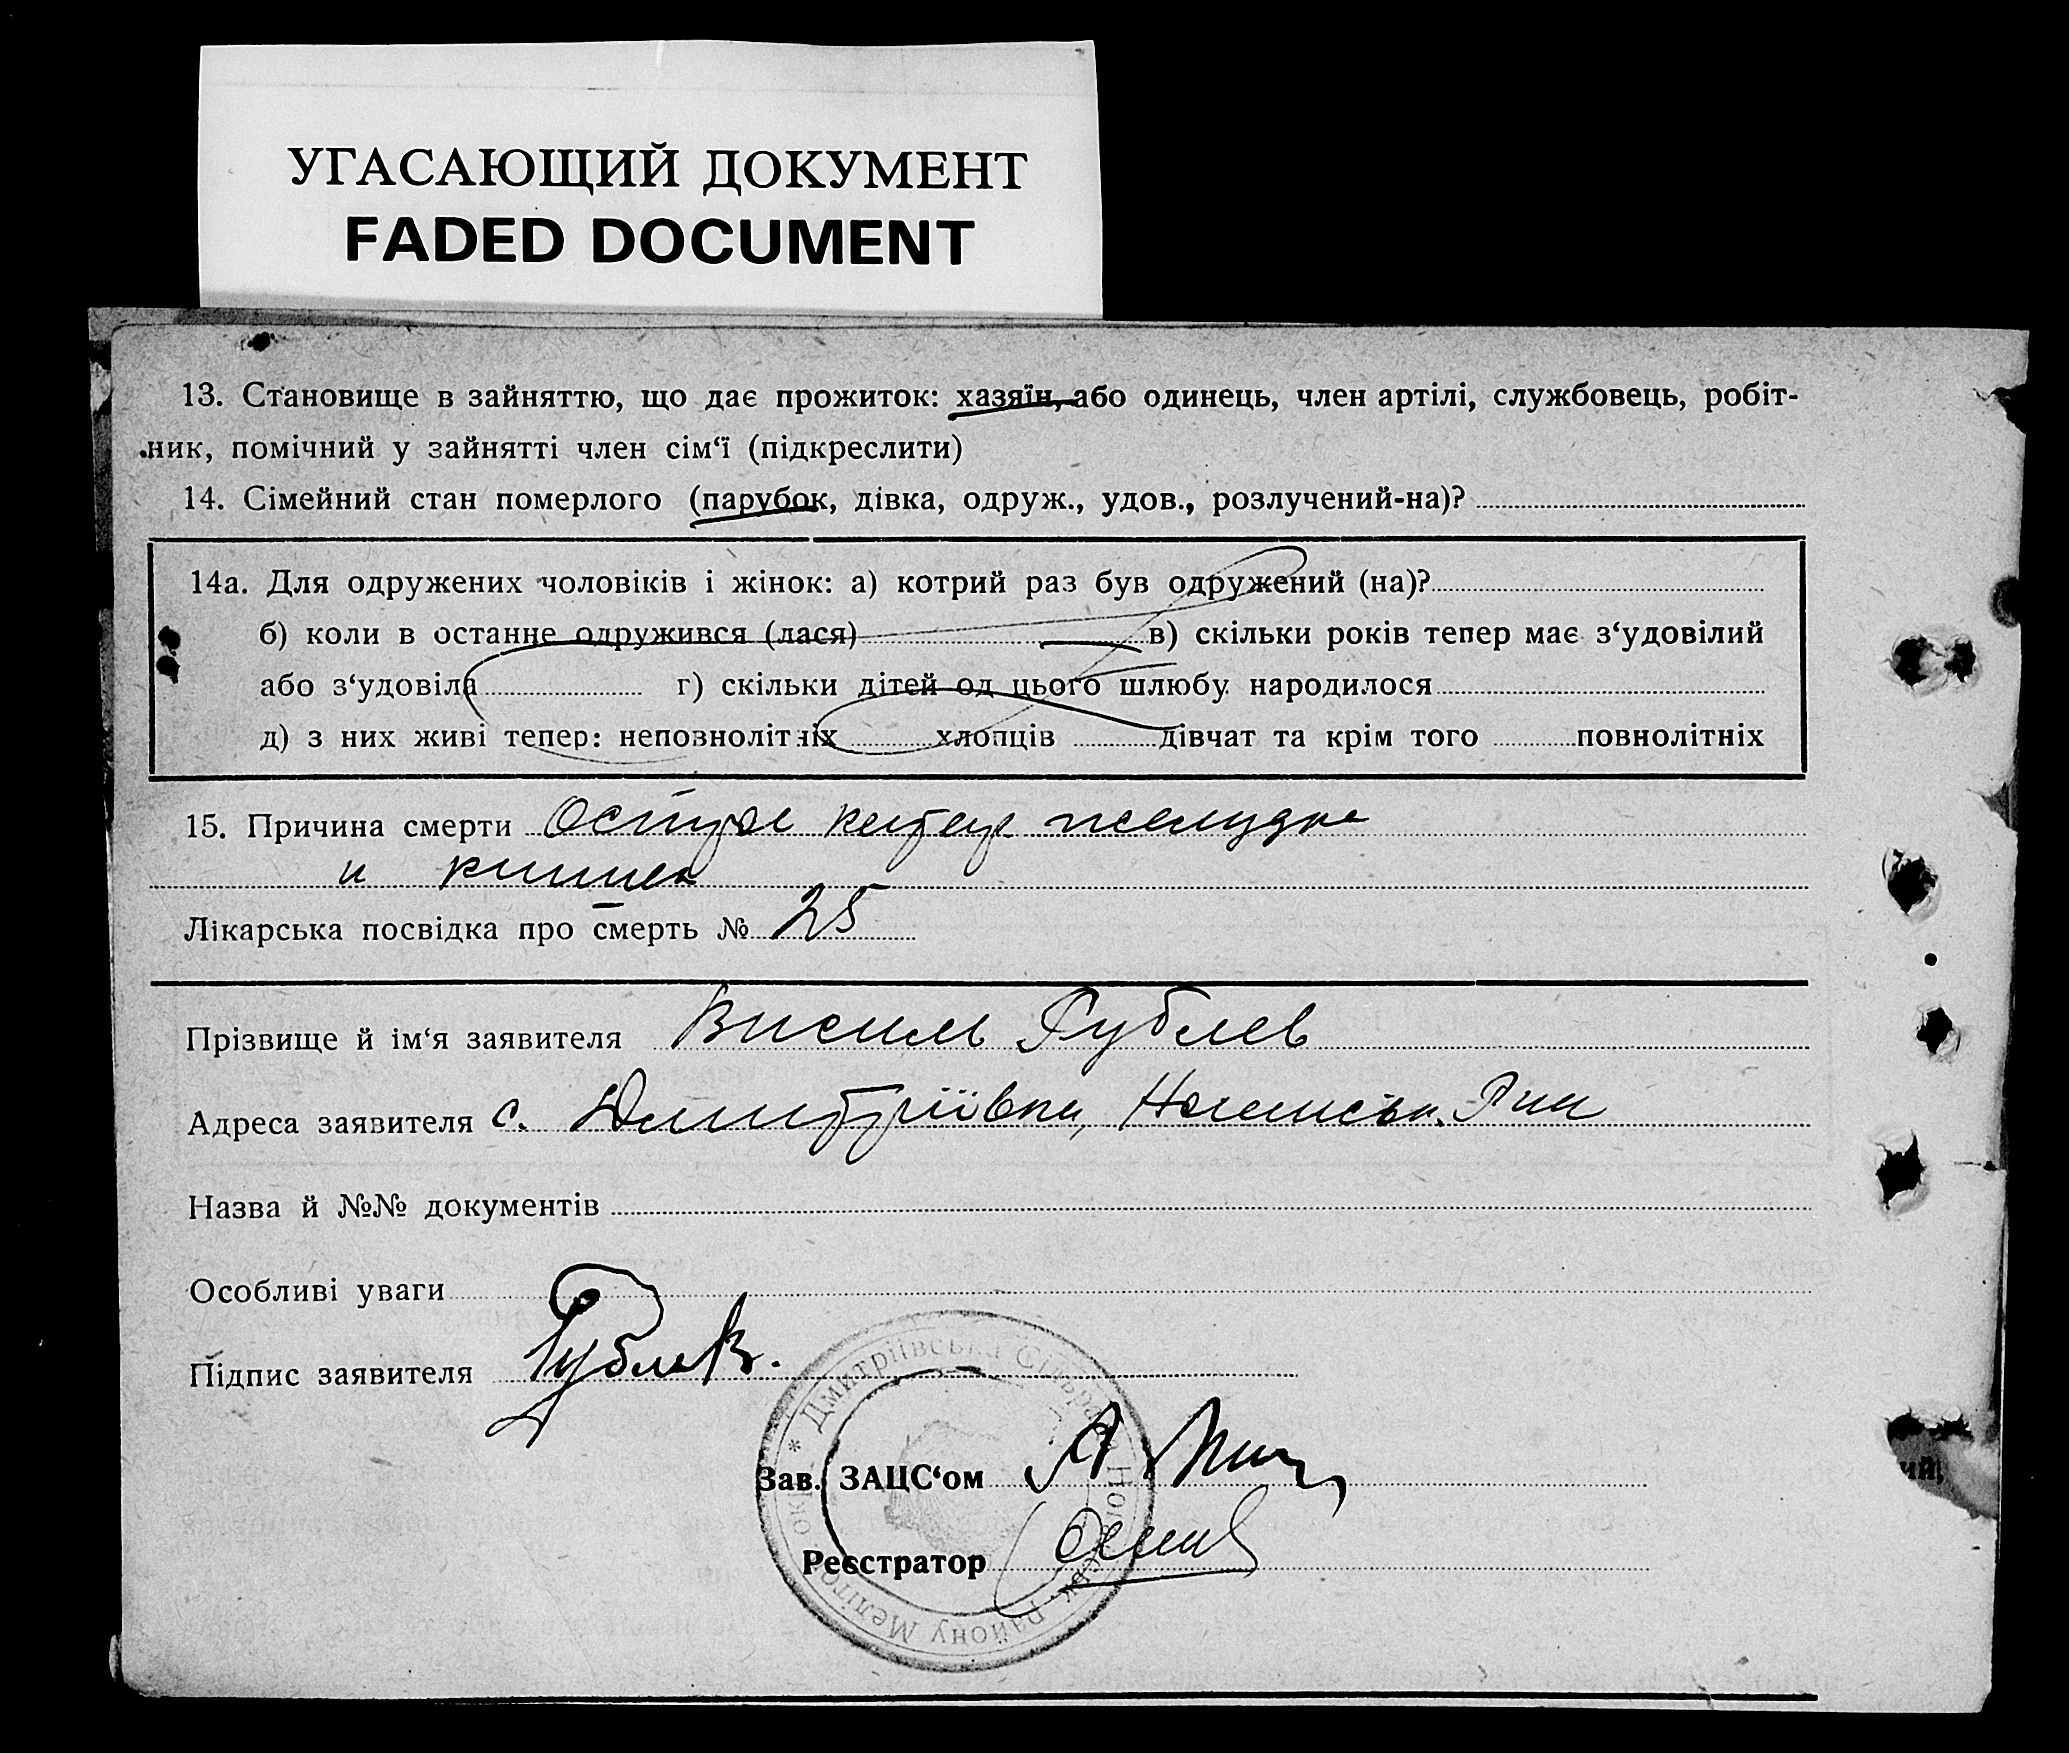 УГАСАЮЩИЙ ДОКУМЕНТ
FADED DOCUMENT
13. Становище в зайняттю, що дає прожиток: хазяїн, або одинець, член артілі, службовець, робіт-
ник, помічний у зайнятті член сім‘ї (підкреслити)
14. Сімейний стан померлого (парубок, дівка, одруж., удов., розлучений-на)?
14а. Для одружених чоловіків і жінок: а) котрий раз був одружений (на)?
б) коли в останнє одружився (лася) в) скільки років тепер має з‘удовілий
або з‘удовіла г) скільки дітей од цього шлюбу народилося
д) з них живі тепер: неповнолітніх хлопців дівчат та крім того повнолітніх
15. Причина смерти Острый катар желудка
и кишек
Лікарська посвідка про смерть № 25
Прізвище й ім‘я заявителя Василь Рублев
Адреса заявителя с. Дмитріївка,
Назва й №№ документів
Особливі уваги
Підпис заявителя Рублев.
* Дмитріївська Сільрада Району
Зав. ЗАЦС‘ом
Реєстратор
ий,